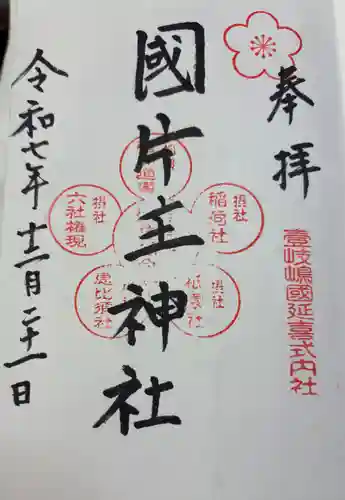 奉拝
壹岐嶋國延喜式内社
國片主神社
摂社
稲荷社
摂社
六社権現
摂社
恵比須社
摂社
祇園社
令和七年十二月二十一日